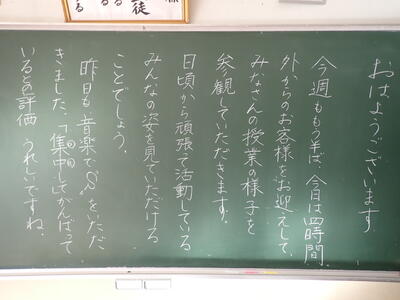 徒
おはようございます。
今週ももう半ば 今日は四時間
外からのお客様をお迎えして、
みなさんの授業の様子を
参観していただきます。
日頃から頑張て活動している
みんなの姿を見ていただける
ことでしょう。
昨日も音楽で"S"をいただ
きました。「集中してがんばって
いるとの評価 うれしいですね。